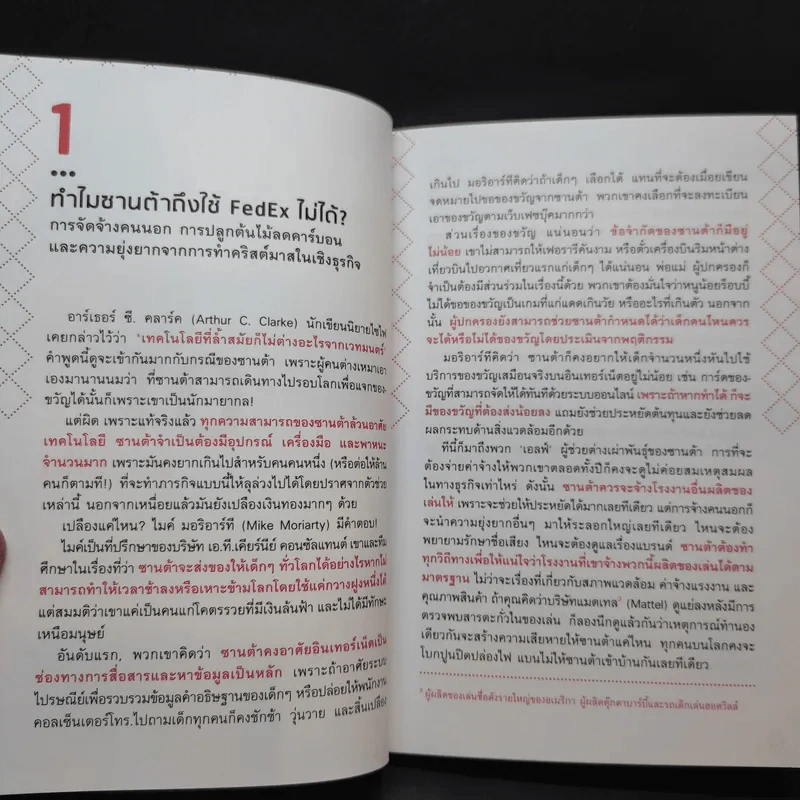 1
ทำไมซานต้าถึงใช้ FedEx ไม่ได้?
การจัดจ้างคนนอก การปลูกต้นไม้ลดคาร์บอน
และความยุ่งยากจากการทำคริสต์มาสในเชิงธุรกิจ
อาร์เธอร์ ซี. คลาร์ค (Arthur C. Clarke) นักเขียนนิยายไซไฟ
เคยกล่าวไว้ว่า 'เทคโนโลยีที่ล้ำสมัยก็ไม่ต่างอะไรจากเวทมนตร์'
คำพูดนี้ดูจะเข้ากันมากกับกรณีของซานต้า เพราะผู้คนต่างเหมาเอา
เองมานานนมว่า ที่ซานต้าสามารถเดินทางไปรอบโลกเพื่อแจกของ
ขวัญได้นั้นก็เพราะเขาเป็นนักมายากล!
แต่ผิด เพราะแท้จริงแล้ว ทุกความสามารถของซานต้าล้วนอาศัย
เทคโนโลยี ซานต้าจำเป็นต้องมีอุปกรณ์ เครื่องมือ และพาหนะ
จำนวนมาก เพราะมันคงยากเกินไปสำหรับคนคนหนึ่ง (หรือต่อให้ล้าน
คนก็ตามที!) ที่จะทำภารกิจแบบนี้ให้ลุล่วงไปได้โดยปราศจากตัวช่วย
เหล่านี้ นอกจากเหนื่อยแล้วมันยังเปลืองเงินทองมากๆ ด้วย
เปลืองแค่ไหน? ไมค์ มอริอาร์ที (Mike Moriarty) มีคำตอบ!
ไมค์เป็นที่ปรึกษาของบริษัท เอ.ที.เคียร์นีย์ คอนซัลแทนต์ เขาและทีม
ศึกษาในเรื่องที่ว่า ซานต้าจะส่งของให้เด็กๆ ทั่วโลกได้อย่างไรหากไม่
สามารถทำให้เวลาช้าลงหรือเหาะข้ามโลกโดยใช้แค่กวางฝูงหนึ่งได้
แต่สมมติว่าเขาแค่เป็นคนแก่โคตรรวยที่มีเงินล้นฟ้า และไม่ได้มีทักษะ
เหนือมนุษย์
อันดับแรก, พวกเขาคิดว่า ซานต้าคงอาศัยอินเทอร์เน็ตเป็น
ช่องทางการสื่อสารและหาข้อมูลเป็นหลัก เพราะถ้าอาศัยระบบ
ไปรษณีย์เพื่อรวบรวมข้อมูลคำอธิษฐานของเด็กๆ หรือปล่อยให้พนักงาน
คอลเซ็นเตอร์โทร.ไปถามเด็กทุกคนก็คงชักช้า วุ่นวาย และสิ้นเปลือง
เกินไป มอริอาร์ทีคิดว่าถ้าเด็กๆ เลือกได้ แทนที่จะต้องเมื่อยเขียน
จดหมายไปขอของขวัญจากซานต้า พวกเขาคงเลือกที่จะลงทะเบียน
เอาของขวัญตามเว็บเฟซบุ๊คมากกว่า
ส่วนเรื่องของขวัญ แน่นอนว่า ข้อจำกัดของซานต้าก็มีอยู่
ไม่น้อย เขาไม่สามารถให้เฟอร์รารีคันงาม หรือตั๋วเครื่องบินริมหน้าต่าง
เที่ยวบินไปอวกาศเที่ยวแรกแก่เด็กๆ ได้แน่นอน พ่อแม่ ผู้ปกครองก็
จำเป็นต้องมีส่วนร่วมในเรื่องนี้ด้วย พวกเขาต้องมั่นใจว่าหนูน้อยร็อบบี้
ไม่ได้ขอของขวัญเป็นเกมที่แก่แดดเกินวัย หรืออะไรที่เกินตัว นอกจาก
นั้น ผู้ปกครองยังสามารถช่วยซานต้ากำหนดได้ว่าเด็กคนไหนควร
จะได้หรือไม่ได้ของขวัญโดยประเมินจากพฤติกรรม
มอริอาร์ทีคิดว่า ซานต้าก็คงอยากให้เด็กจำนวนหนึ่งหันไปใช้
บริการของขวัญเสมือนจริงบนอินเทอร์เน็ตอยู่ไม่น้อย เช่น การ์ดของ-
ขวัญที่สามารถจัดให้ได้ทันทีด้วยระบบออนไลน์ เพราะถ้าหากทำได้ ก็จะ
มีของขวัญที่ต้องส่งน้อยลง แถมยังช่วยประหยัดต้นทุนและยังช่วยลด
ผลกระทบด้านสิ่งแวดล้อมอีกด้วย
ทีนี้ก็มาถึงพวก 'เอลฟ์' ผู้ช่วยต่างเผ่าพันธุ์ของซานต้า การที่จะ
ต้องจ่ายค่าจ้างให้พวกเขาตลอดทั้งปีก็คงจะดูไม่ค่อยสมเหตุสมผล
ในทางธุรกิจเท่าไหร่ ดังนั้น ซานต้าควรจะจ้างโรงงานอื่นผลิตของ
เล่นให้ เพราะจะช่วยให้ประหยัดได้มากเลยทีเดียว แต่การจ้างคนนอกก็
จะนำความยุ่งยากอื่นๆ มาให้ระลอกใหญ่เลยทีเดียว ไหนจะต้อง
พยายามรักษาชื่อเสียง ไหนจะต้องดูแลเรื่องแบรนด์ ซานต้าต้องทำ
ทุกวิถีทางเพื่อให้แน่ใจว่าโรงงานที่เขาจ้างพวกนี้ผลิตของเล่นได้ตาม
มาตรฐาน ไม่ว่าจะเรื่องที่เกี่ยวกับสภาพแวดล้อม ค่าจ้างแรงงาน และ
คุณภาพสินค้า ถ้าคุณคิดว่าบริษัทแมตเทล² (Mattel) ดูแย่ลงหลังมีการ
ตรวจพบสารตะกั่วในของเล่น ก็ลองนึกดูแล้วกันว่าเหตุการณ์ทำนอง
เดียวกันจะสร้างความเสียหายให้ซานต้าแค่ไหน ทุกคนบนโลกคงจะ
โบกปูนปิดปล่องไฟ แบนไม่ให้ซานต้าเข้าบ้านกันเลยทีเดียว
² ผู้ผลิตของเล่นชื่อดังรายใหญ่ของอเมริกา ผู้ผลิตตุ๊กตาบาร์บี้และรถเด็กเล่นฮอตวีลส์